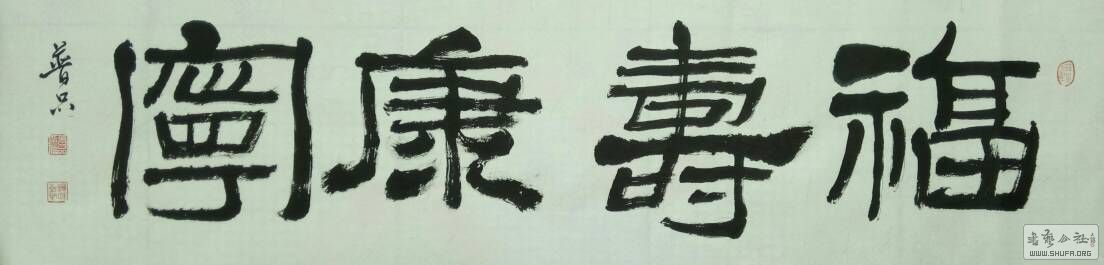 福壽康寧
普只
書藝公社
WWW.SHUFA.ORG